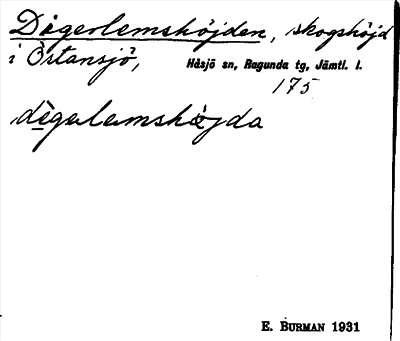 Digerlemshöjden, skogshöjd
i Östansjö, Håsjö sn, Ragunda tg, Jämtl. l.
175
E. Burman 1931